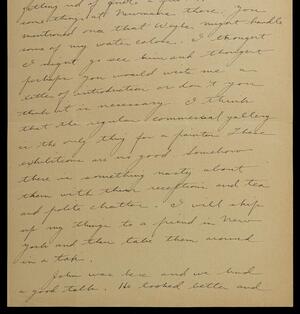 getting rid of quite a
something at Newmans there. You
mentioned once that Weyhe might handle
some of my water colors. I thought
I might go see him and thought
perhaps you would write me a
letter of introduction or don't you
think it is necessary. I think
that the regular commercial gallery
is the only thing for a painter. These
exhibitions are no good somehow
there is something nasty about
them with their receptions and tea
and polite chatter. I will ship
up my things to a friend in New
York and then take them around
in a taxi.
John was here and we had
a good talk. He looked better and